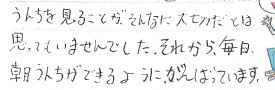 うんちを見ることがそんなに大切だとは
思ってもいませんでした。それから、毎日、
朝うんちができるように、がんばっています。